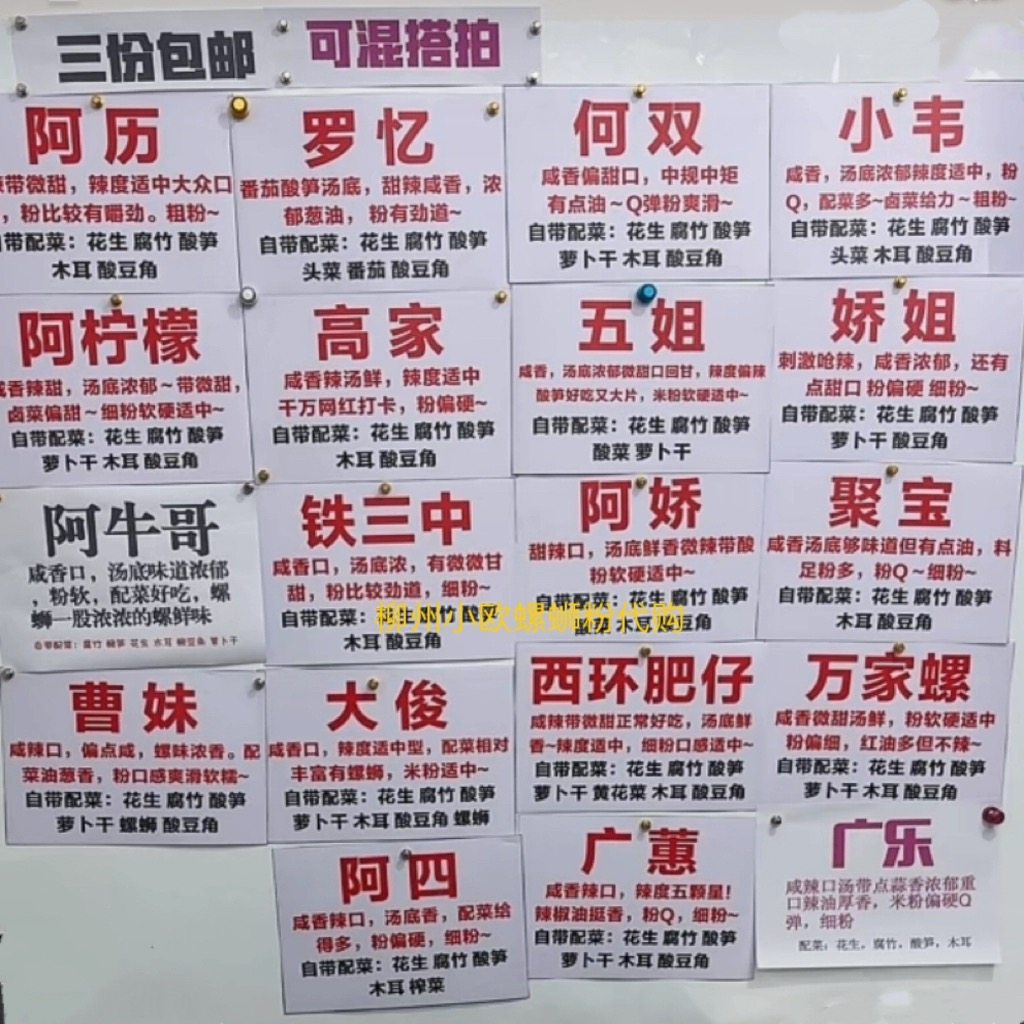 三份包邮
可混搭拍
阿历
辣带微甜，辣度适中大众口
，粉比较有嚼劲。粗粉~
自带配菜：花生 腐竹 酸笋
木耳 酸豆角
罗忆
番茄酸笋汤底，甜辣咸香，浓
郁葱油，粉有劲道~
自带配菜：花生 腐竹 酸笋
头菜 番茄 酸豆角
何双
咸香偏甜口，中规中矩
有点油～Q弹粉爽滑~
自带配菜：花生 腐竹 酸笋
萝卜干 木耳 酸豆角
小韦
咸香，汤底浓郁辣度适中，粉
Q，配菜多~卤菜给力～粗粉~
自带配菜：花生 腐竹 酸笋
头菜 木耳 酸豆角
阿柠檬
咸香辣甜，汤底浓郁～带微甜，
卤菜偏甜～细粉软硬适中~
自带配菜：花生 腐竹 酸笋
萝卜干 木耳 酸豆角
高家
咸香辣汤鲜，辣度适中
千万网红打卡，粉偏硬~
自带配菜：花生 腐竹 酸笋
木耳 酸豆角
五姐
咸香，汤底浓郁微甜口回甘，辣度偏辣
酸笋好吃又大片，米粉软硬适中~
自带配菜：花生 腐竹 酸笋
酸菜 萝卜干
娇姐
刺激呛辣，咸香浓郁，还有
点甜口 粉偏硬 细粉~
自带配菜：花生 腐竹 酸笋
萝卜干 酸豆角
阿牛哥
咸香口，汤底味道浓郁
，粉软，配菜好吃，螺
蛳一股浓浓的螺鲜味
自带配菜：腐竹 酸笋 花生 木耳 酸豆角 萝卜干
铁三中
咸香口，汤底浓，有微微甘
甜，粉比较劲道，细粉~
自带配菜：花生 腐竹 酸笋
木耳 酸豆角
阿娇
甜辣口，汤底鲜香微辣带酸
粉软硬适中~
自带配菜：花生 腐竹
酸笋 木耳 萝卜干
聚宝
咸香汤底够味道但有点油，料
足粉多，粉Q～细粉~
自带配菜：花生 腐竹 酸笋
木耳 酸豆角
柳州小欧螺蛳粉代购
曹妹
咸辣口，偏点咸，螺味浓香。配
菜油葱香，粉口感爽滑软糯~
自带配菜：花生 腐竹 酸笋
萝卜干 螺蛳 酸豆角
大俊
咸香口，辣度适中型，配菜相对
丰富有螺蛳，米粉适中~
自带配菜：花生 腐竹 酸笋
萝卜干 木耳 酸豆角 螺蛳
西环肥仔
咸辣带微甜正常好吃，汤底鲜
香~辣度适中，细粉口感适中~
自带配菜：花生 腐竹 酸笋
萝卜干 黄花菜 木耳 酸豆角
万家螺
咸香微甜汤鲜，粉软硬适中
粉偏细，红油多但不辣~
自带配菜：花生 腐竹 酸笋
萝卜干 木耳 酸豆角
阿四
咸香辣口，汤底香，配菜给
得多，粉偏硬，细粉~
自带配菜：花生 腐竹 酸笋
木耳 榨菜
广蕙
咸香辣口，辣度五颗星！
辣椒油挺香，粉Q，细粉~
自带配菜：花生 腐竹 酸笋
萝卜干 木耳 酸豆角
广乐
咸辣口汤带点蒜香浓郁重
口辣油厚香，米粉偏硬Q
弹，细粉
配菜：花生，腐竹，酸笋，木耳